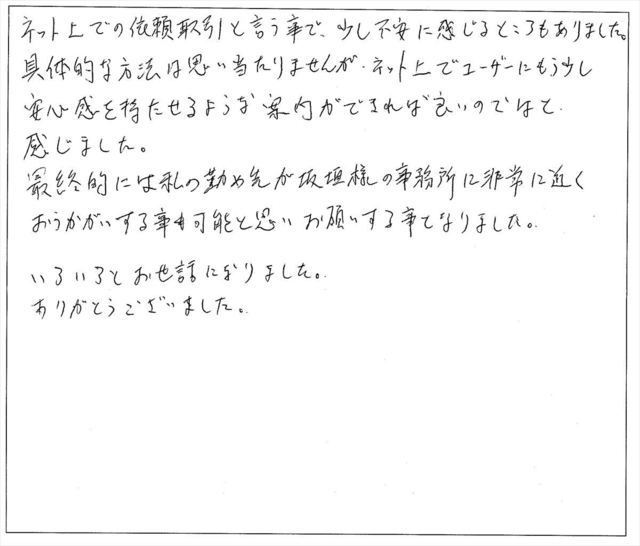 ネット上での依頼取引と言う事で、少し不安に感じるところもありました。
具体的な方法は思い当たりませんが、ネット上でユーザーにもう少し
安心感を持たせるような案内ができれば良いのではと
感じました。
最終的には私の勤め先が板垣様の事務所に非常に近く
おうかがいする事も可能と思いお願いする事となりました。
いろいろとお世話になりました。
ありがとうございました。